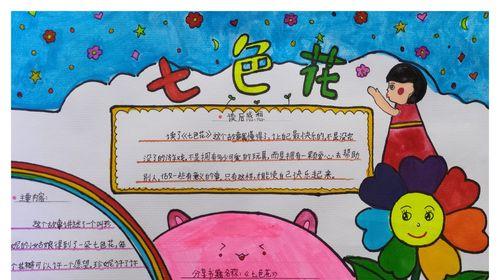 七色花
读后感想
读了《七色花》这个故事我懂得了,让自己最快乐的,不是没完
没了的游戏,不是拥有多少可爱的玩具,而是拥有一颗爱心,去帮助
别人,做一些有意义的事,只有这样,才能使自己快乐起来。
主要内容:
这个故事讲述了一个叫珍
妮的小姑娘得到了一朵七色花,每
个花瓣可以许一个愿望,珍妮许了许
分享书籍名称:《七色花》